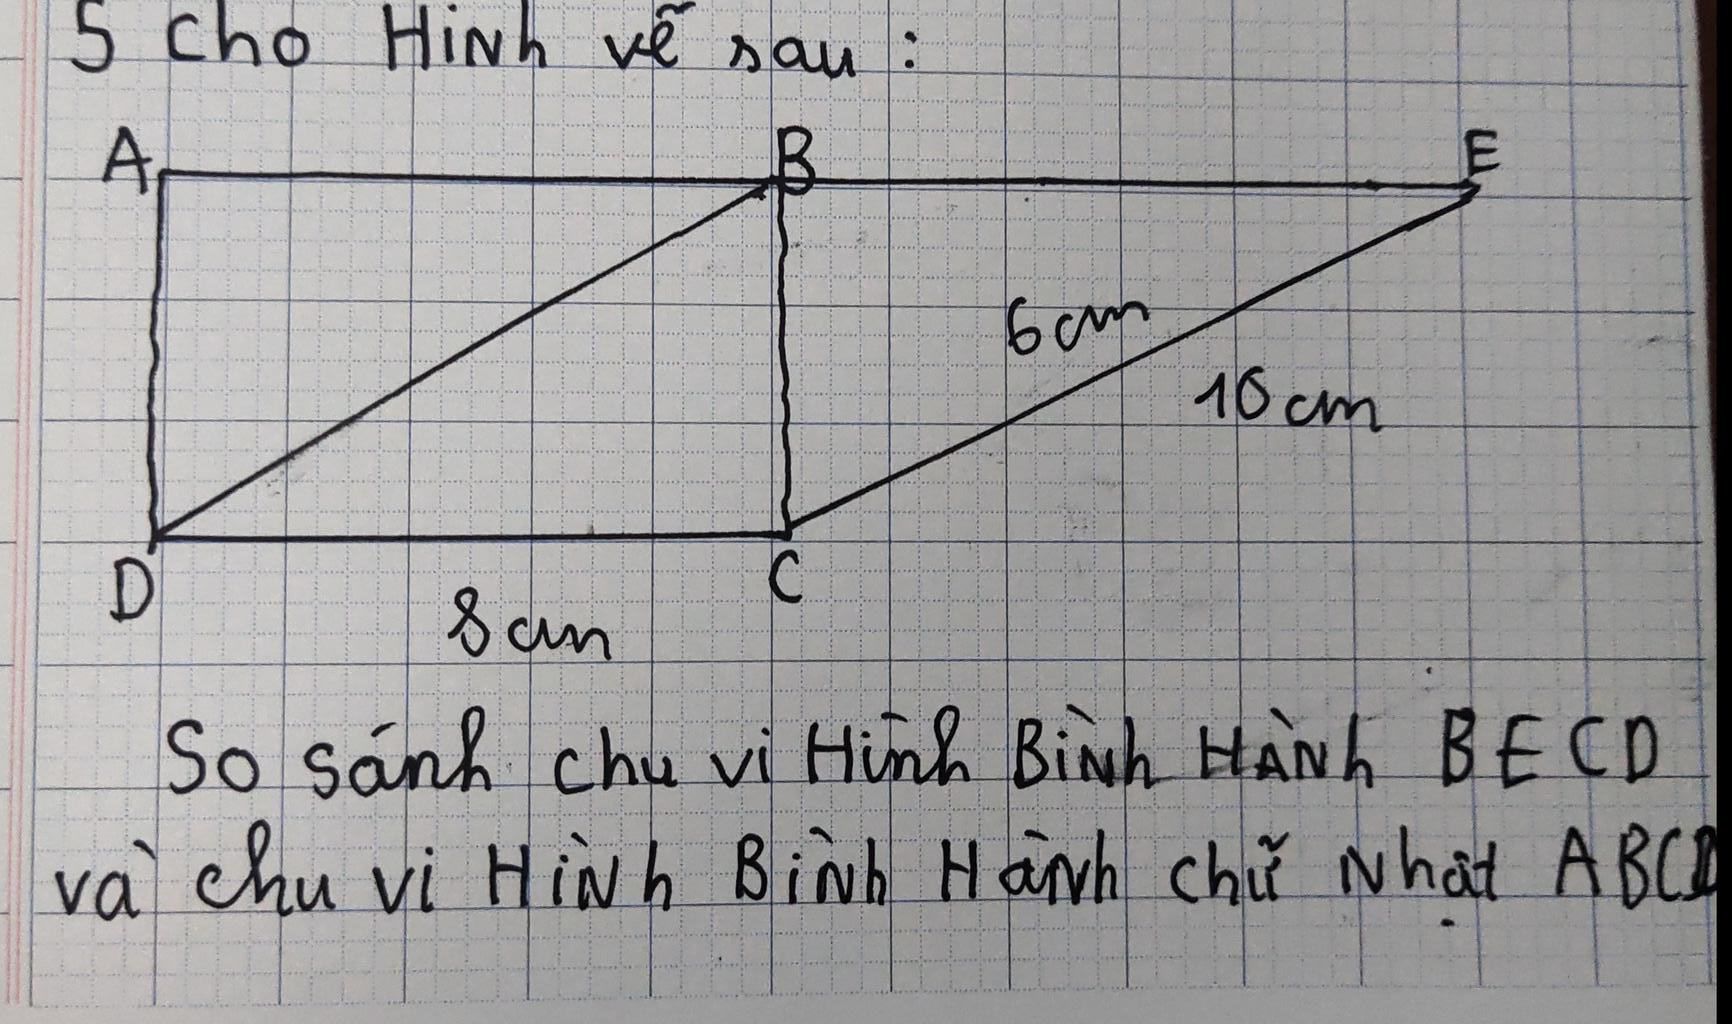 5 cho Hình vẽ sau :
A B E
6cm
10cm
D C
8cm
So sánh chu vi Hình Bình Hành BECD
và chu vi Hình Bình Hành chữ Nhật ABCD